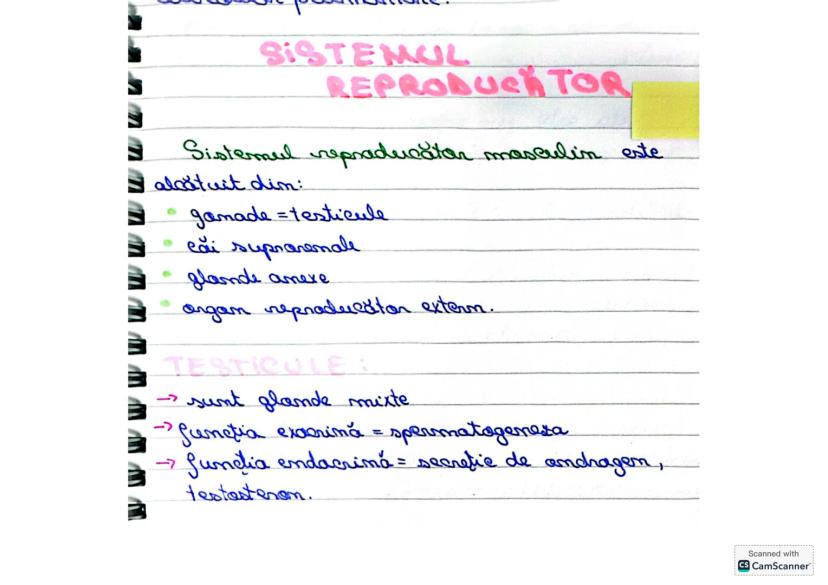 SISTEMUL
REPRODUCĂTOR
Sistemul reproducător masculin este
alcătuit din:
• gonade = testicule
• căi suprarenale
• glande anexe
• organ reproducător extern.
TESTICULE:
→ sunt glande mixte
→ funcția exocrină = spermatogeneza
→ funcția endocrină = secreție de androgen,
testosteron.
Scanned with
CS CamScanner